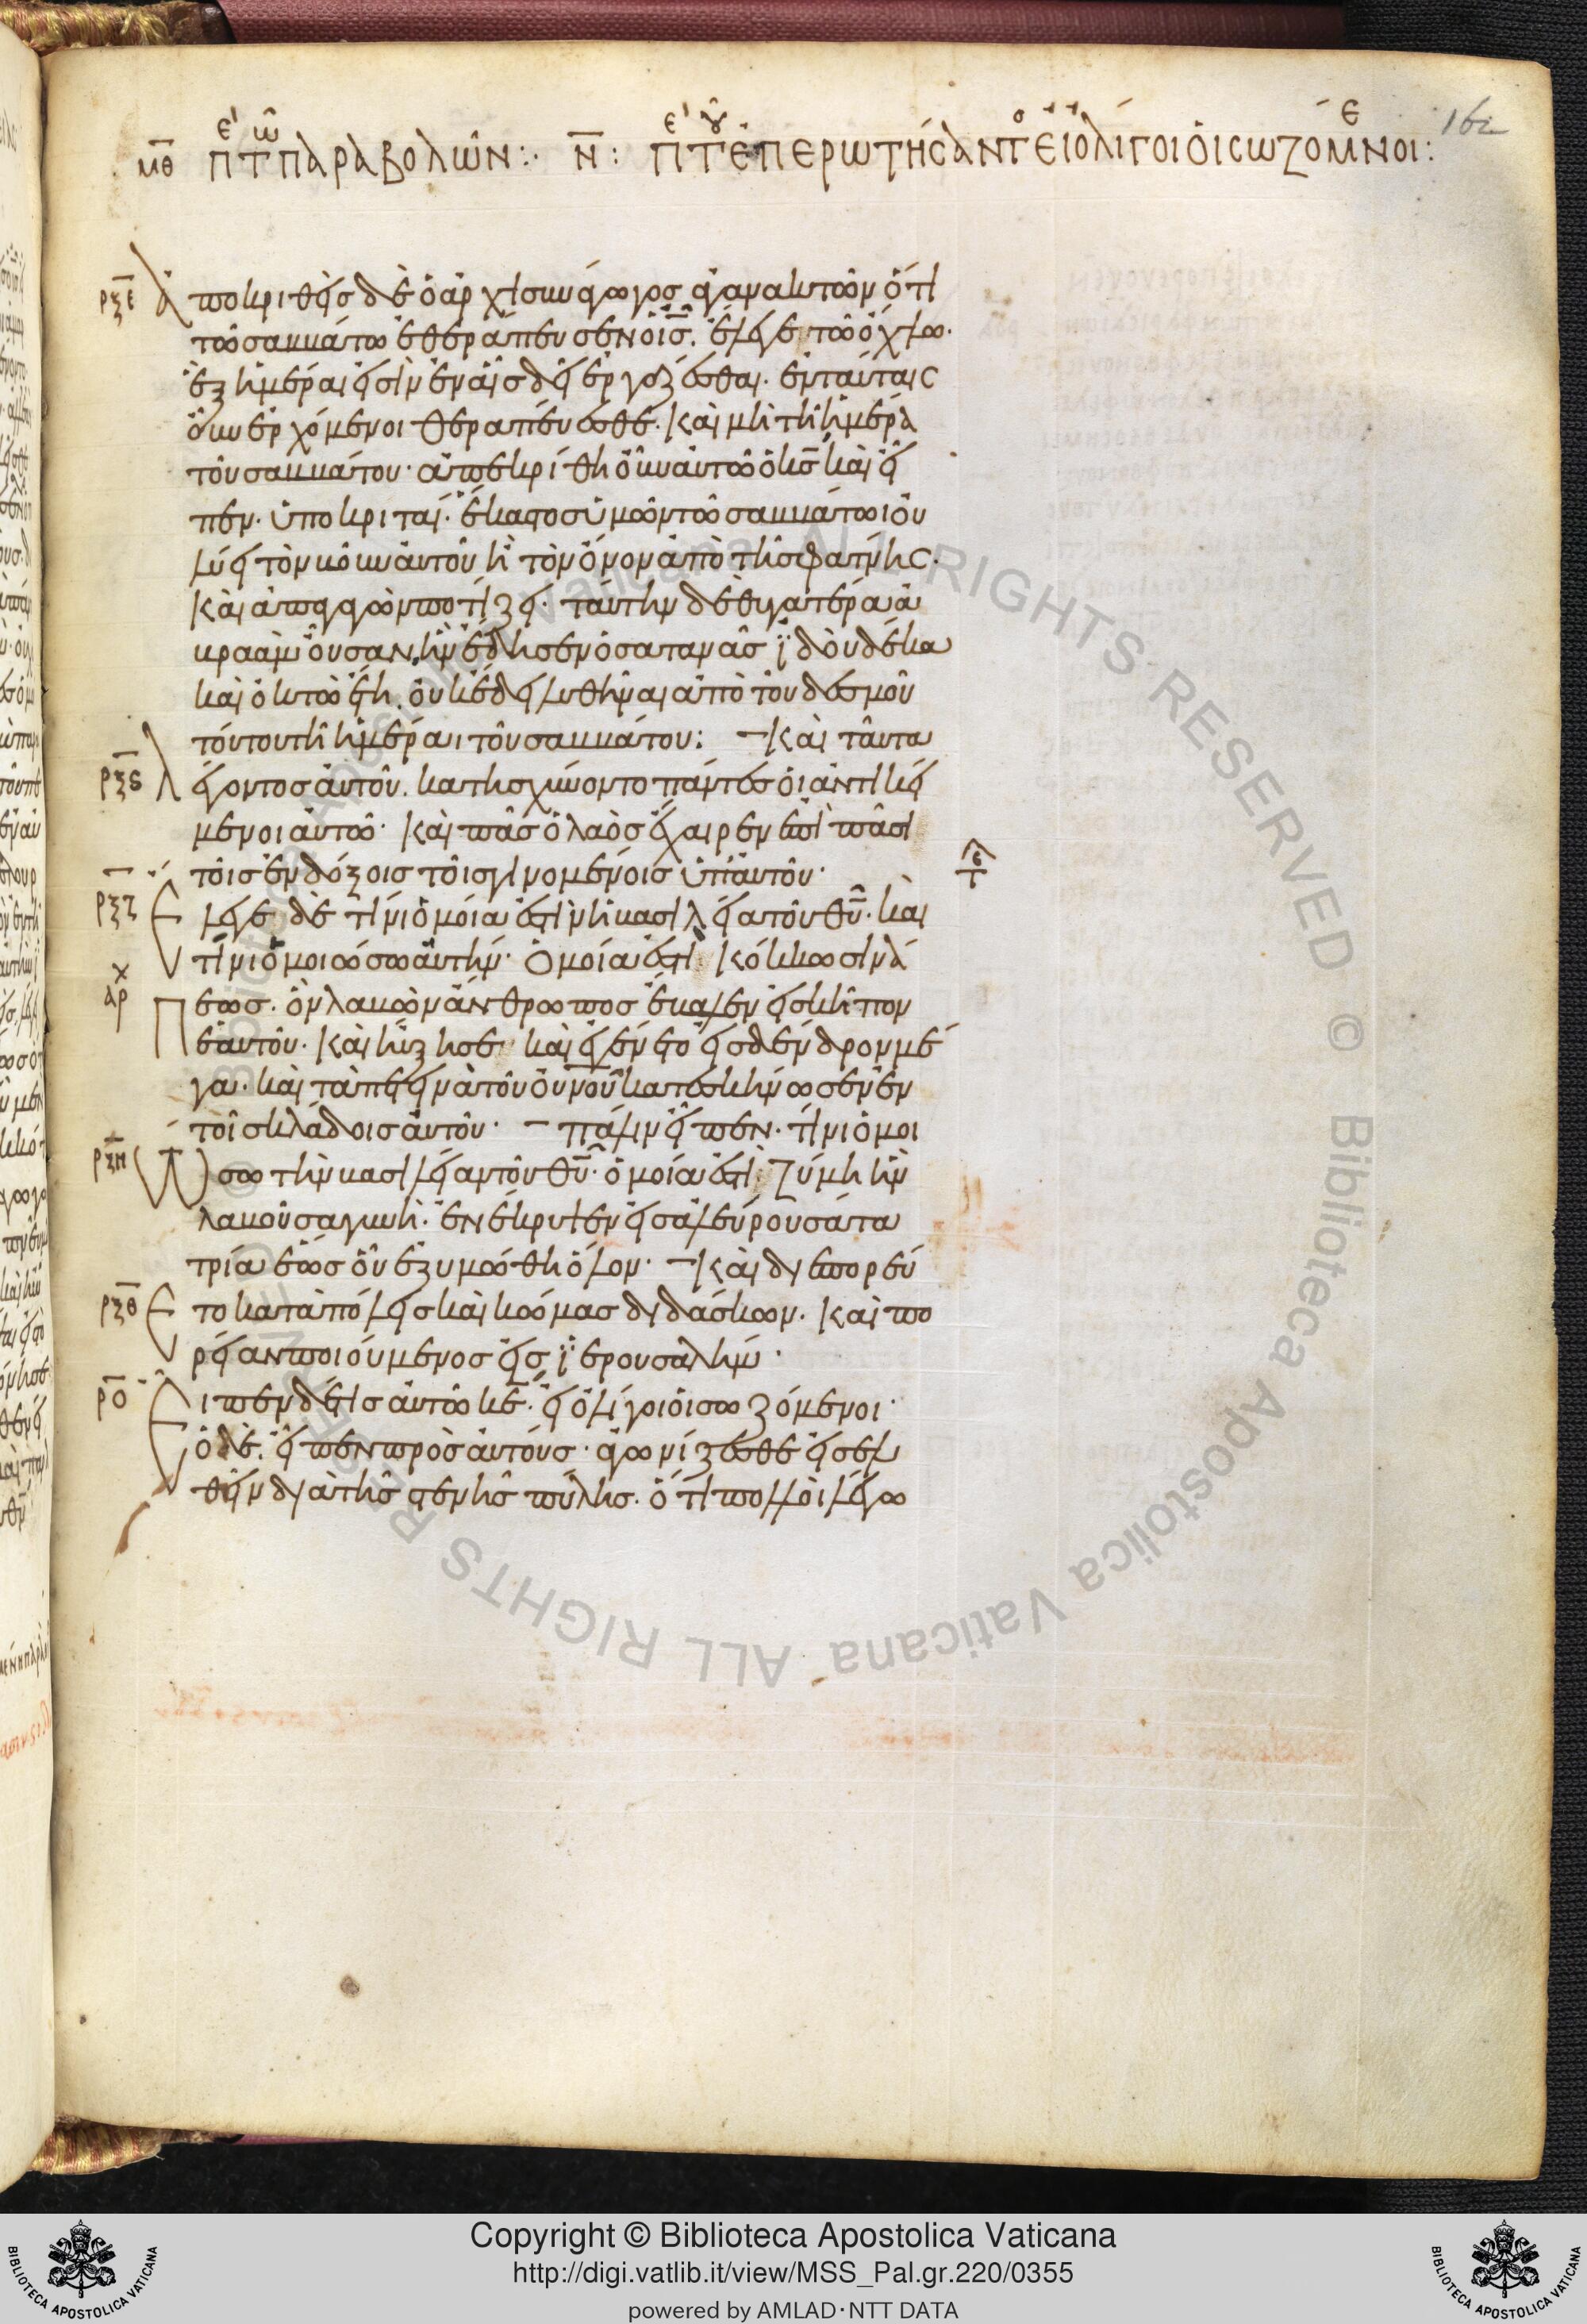 162
μθ πε τῶ παραβολῶν:· ν: πε τοῦ ἐπερωτήσαντο εἰ ὀλίγοι οἱ σωζόμενοι:
ρξε ἀποκριθεὶς δὲ ὁ ἀρχισυνάγωγος ἀγανακτῶν ὅτι
τῶ σαββάτω ἐθεράπευσεν ὁ ἰς. ἔλεγε τῶ ὄχλω.
ἓξ ἡμέραι εἰσὶν ἐν αἷς δεῖ ἐργάζεσθαι. ἐν ταύταις
οὖν ἐρχόμενοι θεραπεύεσθε. καὶ μὴ τῆ ἡμέρα
τοῦ σαββάτου· ἀπεκρίθη οὖν αὐτῶ ὁ κς καὶ εἶ
πεν. ὑποκριταί. ἕκαστος ὑμῶν τῶ σαββάτωι οὐ
λύει τὸν βοῦν αὐτοῦ ἢ τὸν ὄνον ἀπὸ τῆς φάτνης.
καὶ ἀπαγαγὼν ποτίζει. ταύτην δὲ θυγατέρα ἀ
βραὰμ οὖσαν, ἣν ἔδησεν ὁ σατανᾶς ἰδοὺ δέκα
καὶ ὀκτὼ ἔτη, οὐκ ἔδει λυθῆναι ἀπὸ τοῦ δεσμοῦ
τούτου τῆ ἡμέραι τοῦ σαββάτου: – καὶ ταῦτα
ρξϛ λέγοντος αὐτοῦ. κατησχύνοντο πάντες οἱ ἀντικεί
μενοι αὐτῶ· καὶ πᾶς ὁ λαὸς ἔχαιρεν ἐπὶ πᾶσι
τοῖς ἐνδόξοις τοῖς γινομένοις ὑπ' αὐτοῦ·
ρξζ ἔλεγε δὲ τίνι ὁμοία ἐστὶν ἡ βασιλεία τοῦ θυ. καὶ
τίνι ὁμοιώσω αὐτήν· ὁμοία ἐστὶ κόκκω σινά
αρχ πεως. ὃν λαβὼν ἄνθρωπος ἔβαλεν εἰς κῆπον
ἑαυτοῦ. καὶ ηὔξησε καὶ ἐγένετο εἰς δένδρον μέ
γα. καὶ τὰ πετεινὰ τοῦ οὐνου κατεσκήνωσεν ἐν
τοῖς κλάδοις αὐτοῦ· – πάλιν εἶπεν. τίνι ὁμοι
ρξη ώσω τὴν βασιλείαν τοῦ θυ. ὁμοία ἐστὶ ζύμη ἣν
λαβοῦσα γυνὴ. ἐνέκρυψεν εἰς ἀλεύρου σάτα
τρία ἕως οὗ ἐζυμώθη ὅλον· – καὶ διεπορεύ
ρξθ ετο κατὰ πόλεις καὶ κώμας διδάσκων. καὶ πο
ρείαν ποιούμενος εἰς ἰερουσαλήμ·
ρο εἶπεν δέ τις αὐτῶ κε. εἰ ὀλίγοι οἱ σωζόμενοι·
ὁ δὲ. εἶπεν πρὸς αὐτούς· ἀγωνίζεσθε εἰσελ
θεῖν διὰ τῆς στενῆς πύλης. ὅτι πολλοὶ λέγω
Copyright © Biblioteca Apostolica Vaticana
http://digi.vatlib.it/view/MSS_Pal.gr.220/0355
powered by AMLAD·NTT DATA